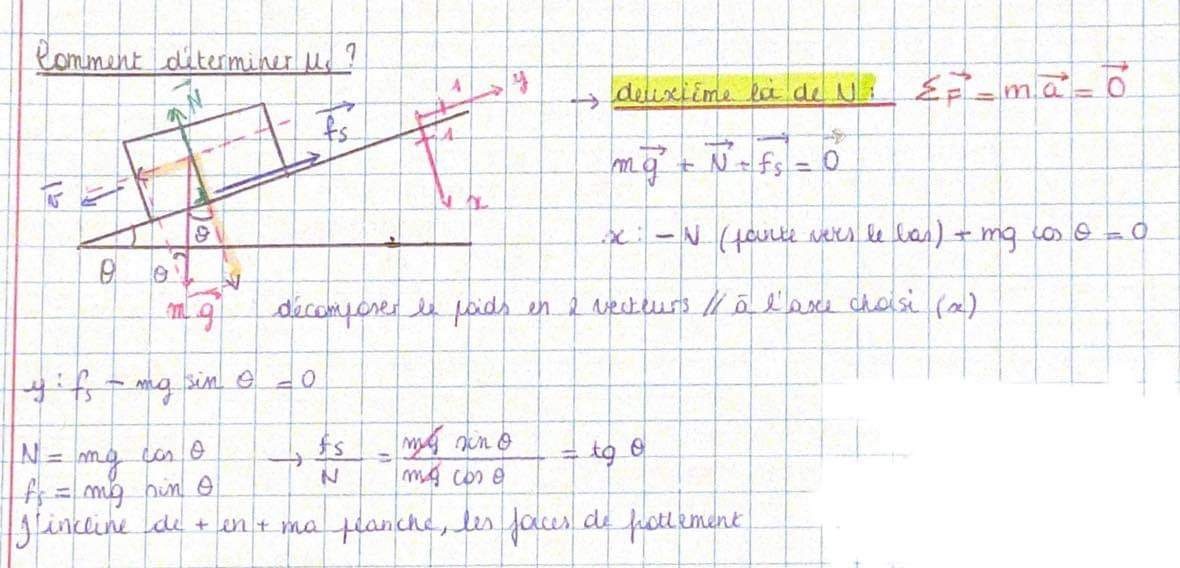 Comment déterminer μs ?
→ deuxième loi de N : ΣF⃗ = m a⃗ = 0⃗
N⃗
f⃗s
1
y
1
x
v⃗
θ
θ
θ
mg⃗
mg⃗ + N⃗ + f⃗s = 0⃗
x : - N (pointe vers le bas) + mg cos θ = 0
décomposer le poids en 2 vecteurs // à l'axe choisi (x)
y : fs - mg sin θ = 0
N = mg cos θ → fs/N = mg sin θ / mg cos θ = tg θ
fs = mg sin θ
J'incline de + en + ma planche, les forces de frottement